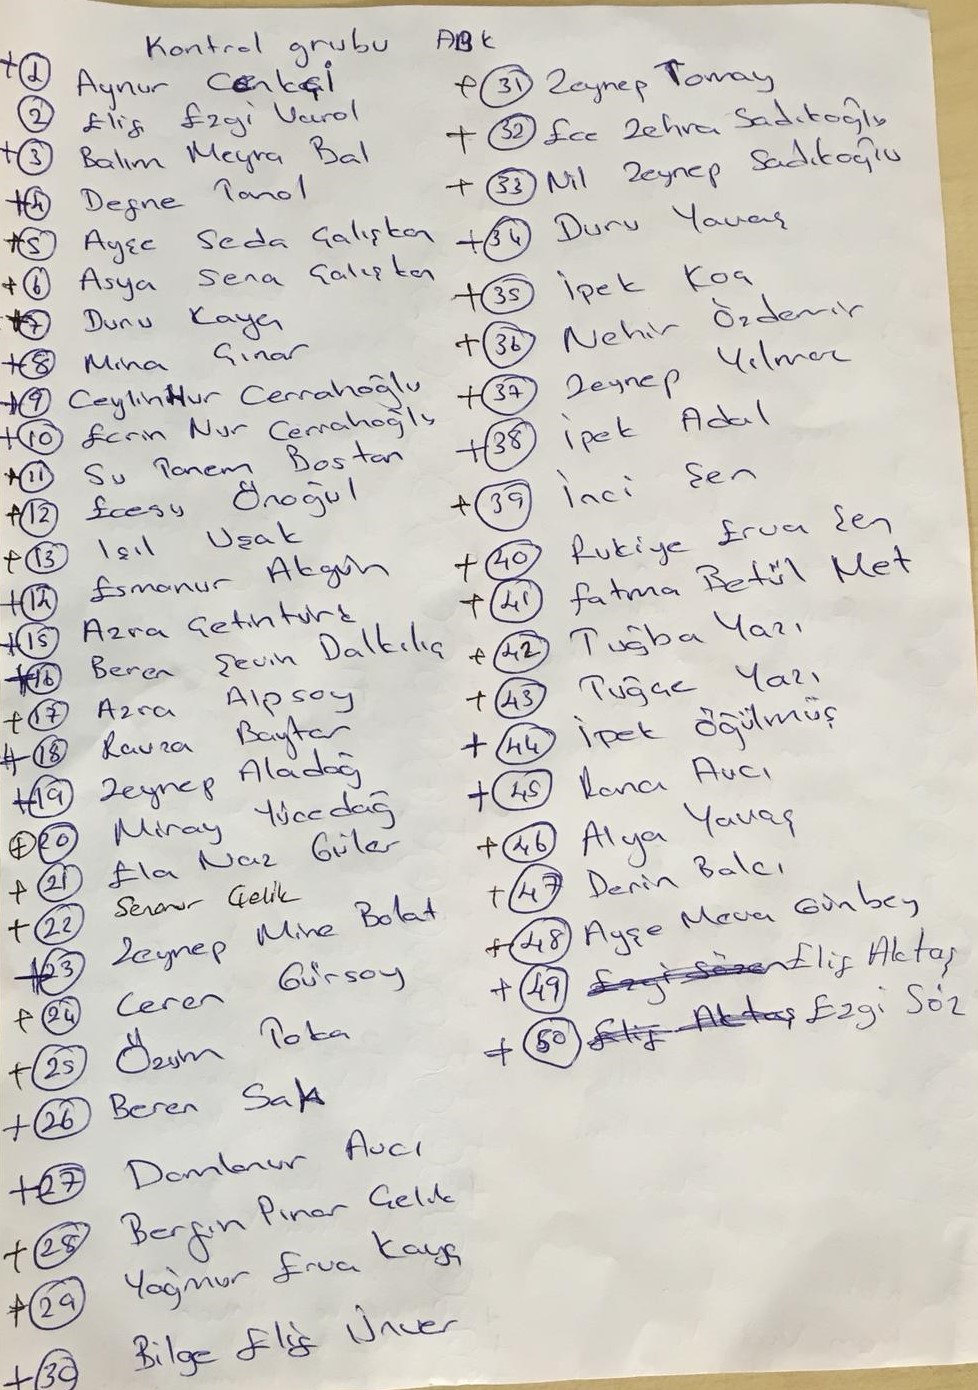 Kontrol grubu ABK
+ 1 Aynur Cenkçi
2 Elif Ezgi Varol
+ 3 Balım Meyra Bal
+ 4 Defne Tanol
+ 5 Ayşe Seda Çalışkan
+ 6 Asya Sena Çalışkan
+ 7 Duru Kaya
+ 8 Mina Çınar
+ 9 Ceylin Nur Cerrahoğlu
+ 10 Ecrin Nur Cerrahoğlu
+ 11 Su Tanem Bostan
+ 12 Ecesu Önoğul
+ 13 Işıl Uşak
+ 14 Esmanur Akgün
+ 15 Azra Çetintürk
+ 16 Beren Şevin Dalkılıç
+ 17 Azra Alpsoy
+ 18 Ravza Baytar
+ 19 Zeynep Aladağ
+ 20 Miray Yücedağ
+ 21 Ela Naz Güler
+ 22 Senanur Çelik
+ 23 Zeynep Mine Bolat
+ 24 Ceren Gürsoy
+ 25 Özüm Toka
+ 26 Beren Sak
+ 27 Damlanur Avcı
+ 28 Bergin Pınar Çelik
+ 29 Yağmur Erva Kaya
+ 30 Bilge Elif Ünver
+ 31 Zeynep Tomay
+ 32 Ece Zehra Sadıkoğlu
+ 33 Nil Zeynep Sadıkoğlu
+ 34 Duru Yavaş
+ 35 İpek Koç
+ 36 Nehir Özdemir
+ 37 Zeynep Yılmaz
+ 38 İpek Adal
+ 39 İnci Şen
+ 40 Rukiye Erva Şen
+ 41 Fatma Betül Met
+ 42 Tuğba Yazı
+ 43 Tuğçe Yazı
+ 44 İpek Öğülmüş
+ 45 Rana Avcı
+ 46 Alya Yavaş
+ 47 Derin Balcı
+ 48 Ayşe Meva Günbey
+ 49 Ezgi Sözen Elif Aktaş
+ 50 Elif Aktaş Ezgi Söz